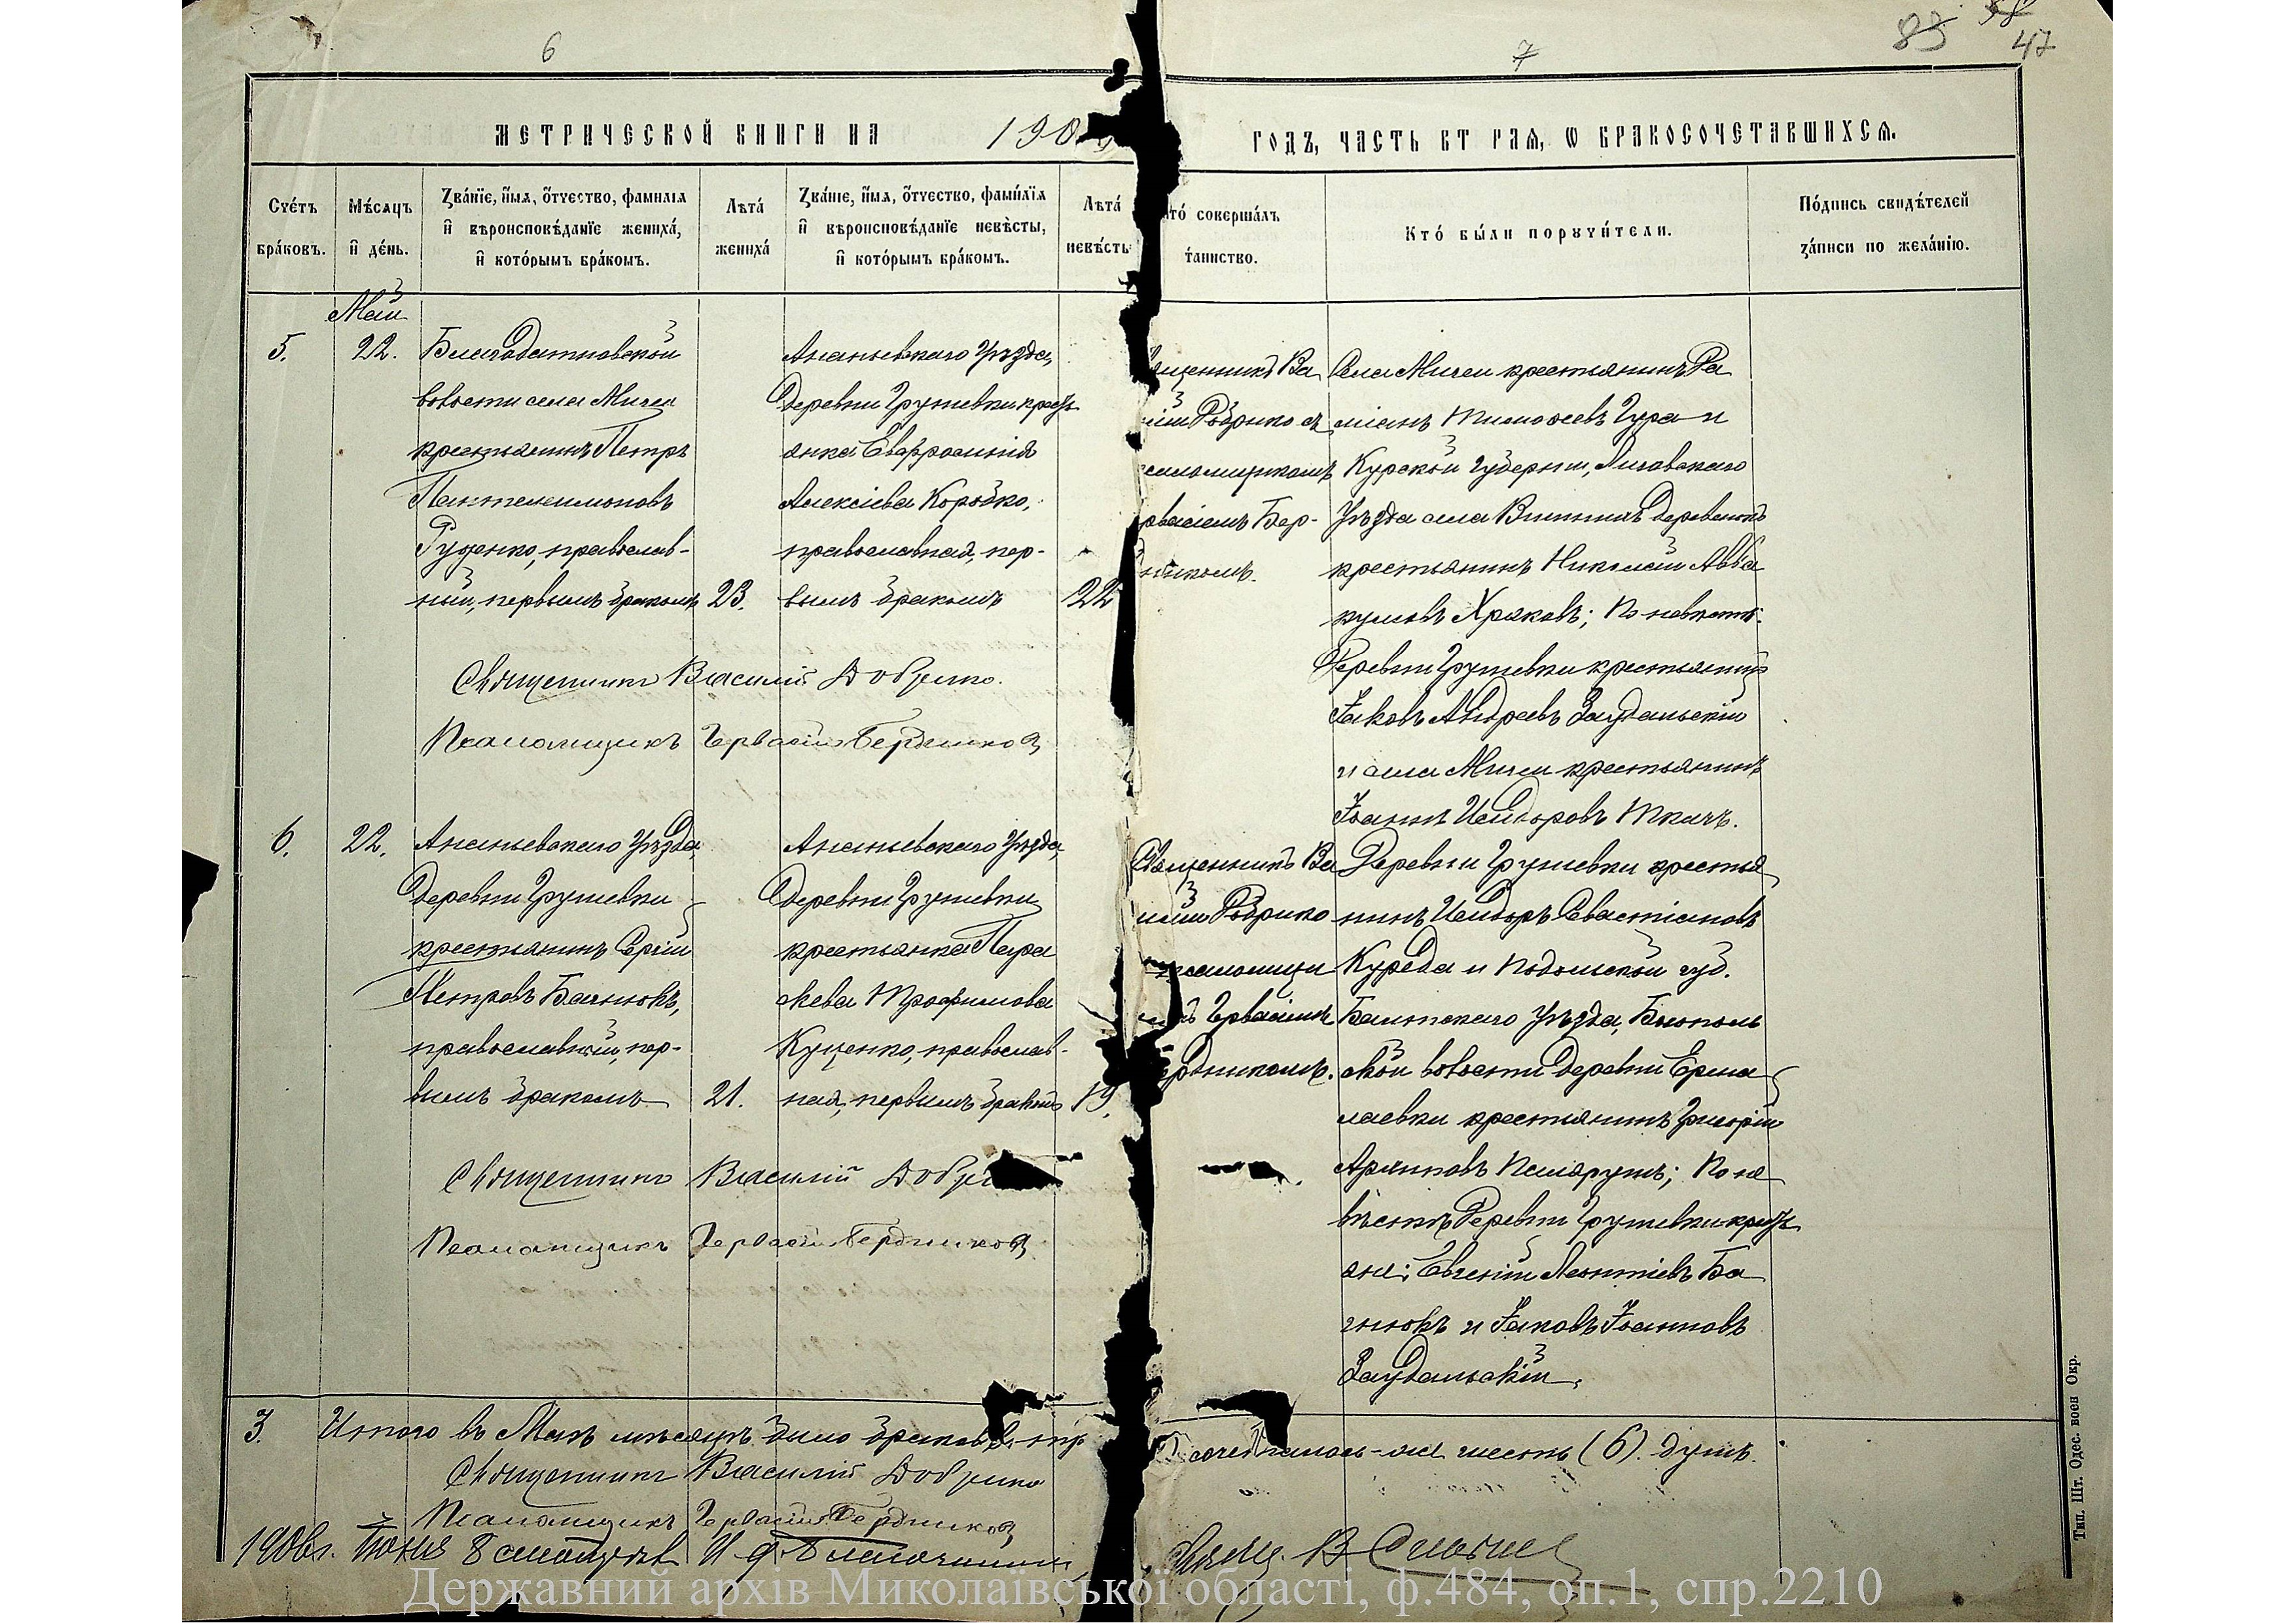 6
7
83 58
47
МЕТРИЧЕСКОЙ КНИГИ НА 190
ГОДЪ, ЧАСТЬ ВТ РАѦ, Ѡ БРАКОСОЧЕТАВШИХСѦ.
Счетъ браковъ.
Мѣсяцъ и день.
Званіе, имя, отчество, фамилія и вѣроисповѣданіе жениха, и которымъ бракомъ.
Лѣта жениха
Званіе, имя, отчество, фамилія и вѣроисповѣданіе невѣсты, и которымъ бракомъ.
Лѣта невѣсты
то совершалъ таинство.
Кто были поручители.
Подпись свидѣтелей записи по желанію.
Май
5.
22.
Благодатновской
волости села Мигеи
крестьянинъ Петръ
Пантелеимоновъ
Руденко, православ-
ный, первымъ бракомъ
23.
Ананьевскаго уѣзда,
деревни Грушевки кресть
янка Евфросинія
Алексіева Коробко,
православная, пер-
вымъ бракомъ
22
щенникъ Ва
лій Добрико съ
саломщикомъ
рвасіемъ Бер-
никомъ.
Села Мигеи крестьянинъ Да
міанъ Тимофеевъ Гура и
Курской губерніи, Льговскаго
уѣзда села Вышнихъ Деревенокъ
крестьянинъ Николай Авва
кумовъ Храковъ; По невѣстѣ:
деревни Грушевки крестьянинъ
Іаковъ Андреевъ Загудальскій
и села Мигеи крестьянинъ
Іоаннъ Исидоровъ Ткачъ.
Священникъ Василій Добрико.
Псаломщикъ Гервасій Бердников
6.
22.
Ананьевскаго уѣзда,
деревни Грушевки
крестьянинъ Сергій
Петровъ Багнюкъ,
православный, пер-
вымъ бракомъ
21.
Ананьевскаго уѣзда,
деревни Грушевки
крестьянка Пара
скева Трофимова
Куценко, православ-
ная, первымъ бракомъ
19.
Священникъ Ва
лій Добрико
псаломщи
Гервасіемъ
ердникомъ.
Деревни Грушевки крестья
нинъ Исидоръ Севастіановъ
Куреда и Подольской губ.
Балтскаго уѣзда,
ской волости деревни Ерма
лаевки крестьянинъ Григорій
Архиповъ; По не
вѣстѣ деревни Грушевки кресть
яне: Евгеній Леонтіевъ Ба
гнюкъ и Іаковъ Іоанновъ
Загудальскій.
Священникъ Василій Добри
Псаломщикъ Гервасій Бердников
3.
Итого въ Маѣ мѣсяцѣ было браковъ тр
сочеталось-же шесть (6) душъ.
Священникъ Василій Добрико
Псаломщикъ Гервасій Бердников
1906 г. Іюня 8 И. д. Благочиннаго
Свящ. В.
Тип. Шт. Одес. воен Окр.
Державний архів Миколаївської області, ф.484, оп.1, спр.2210